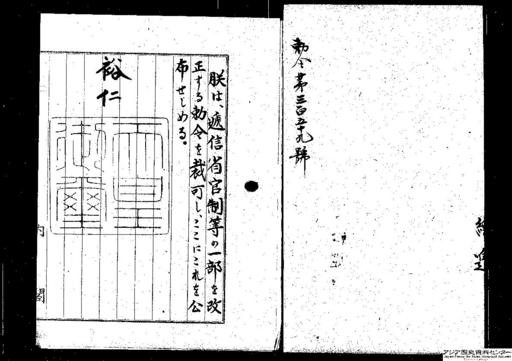 勅令第三百五十九號
朕は、遞信省官制等の一部を改
正する勅令を裁可し、ここにこれを公
布せしめる。
裕仁
天皇御璽
内閣
アジア歴史資料センター